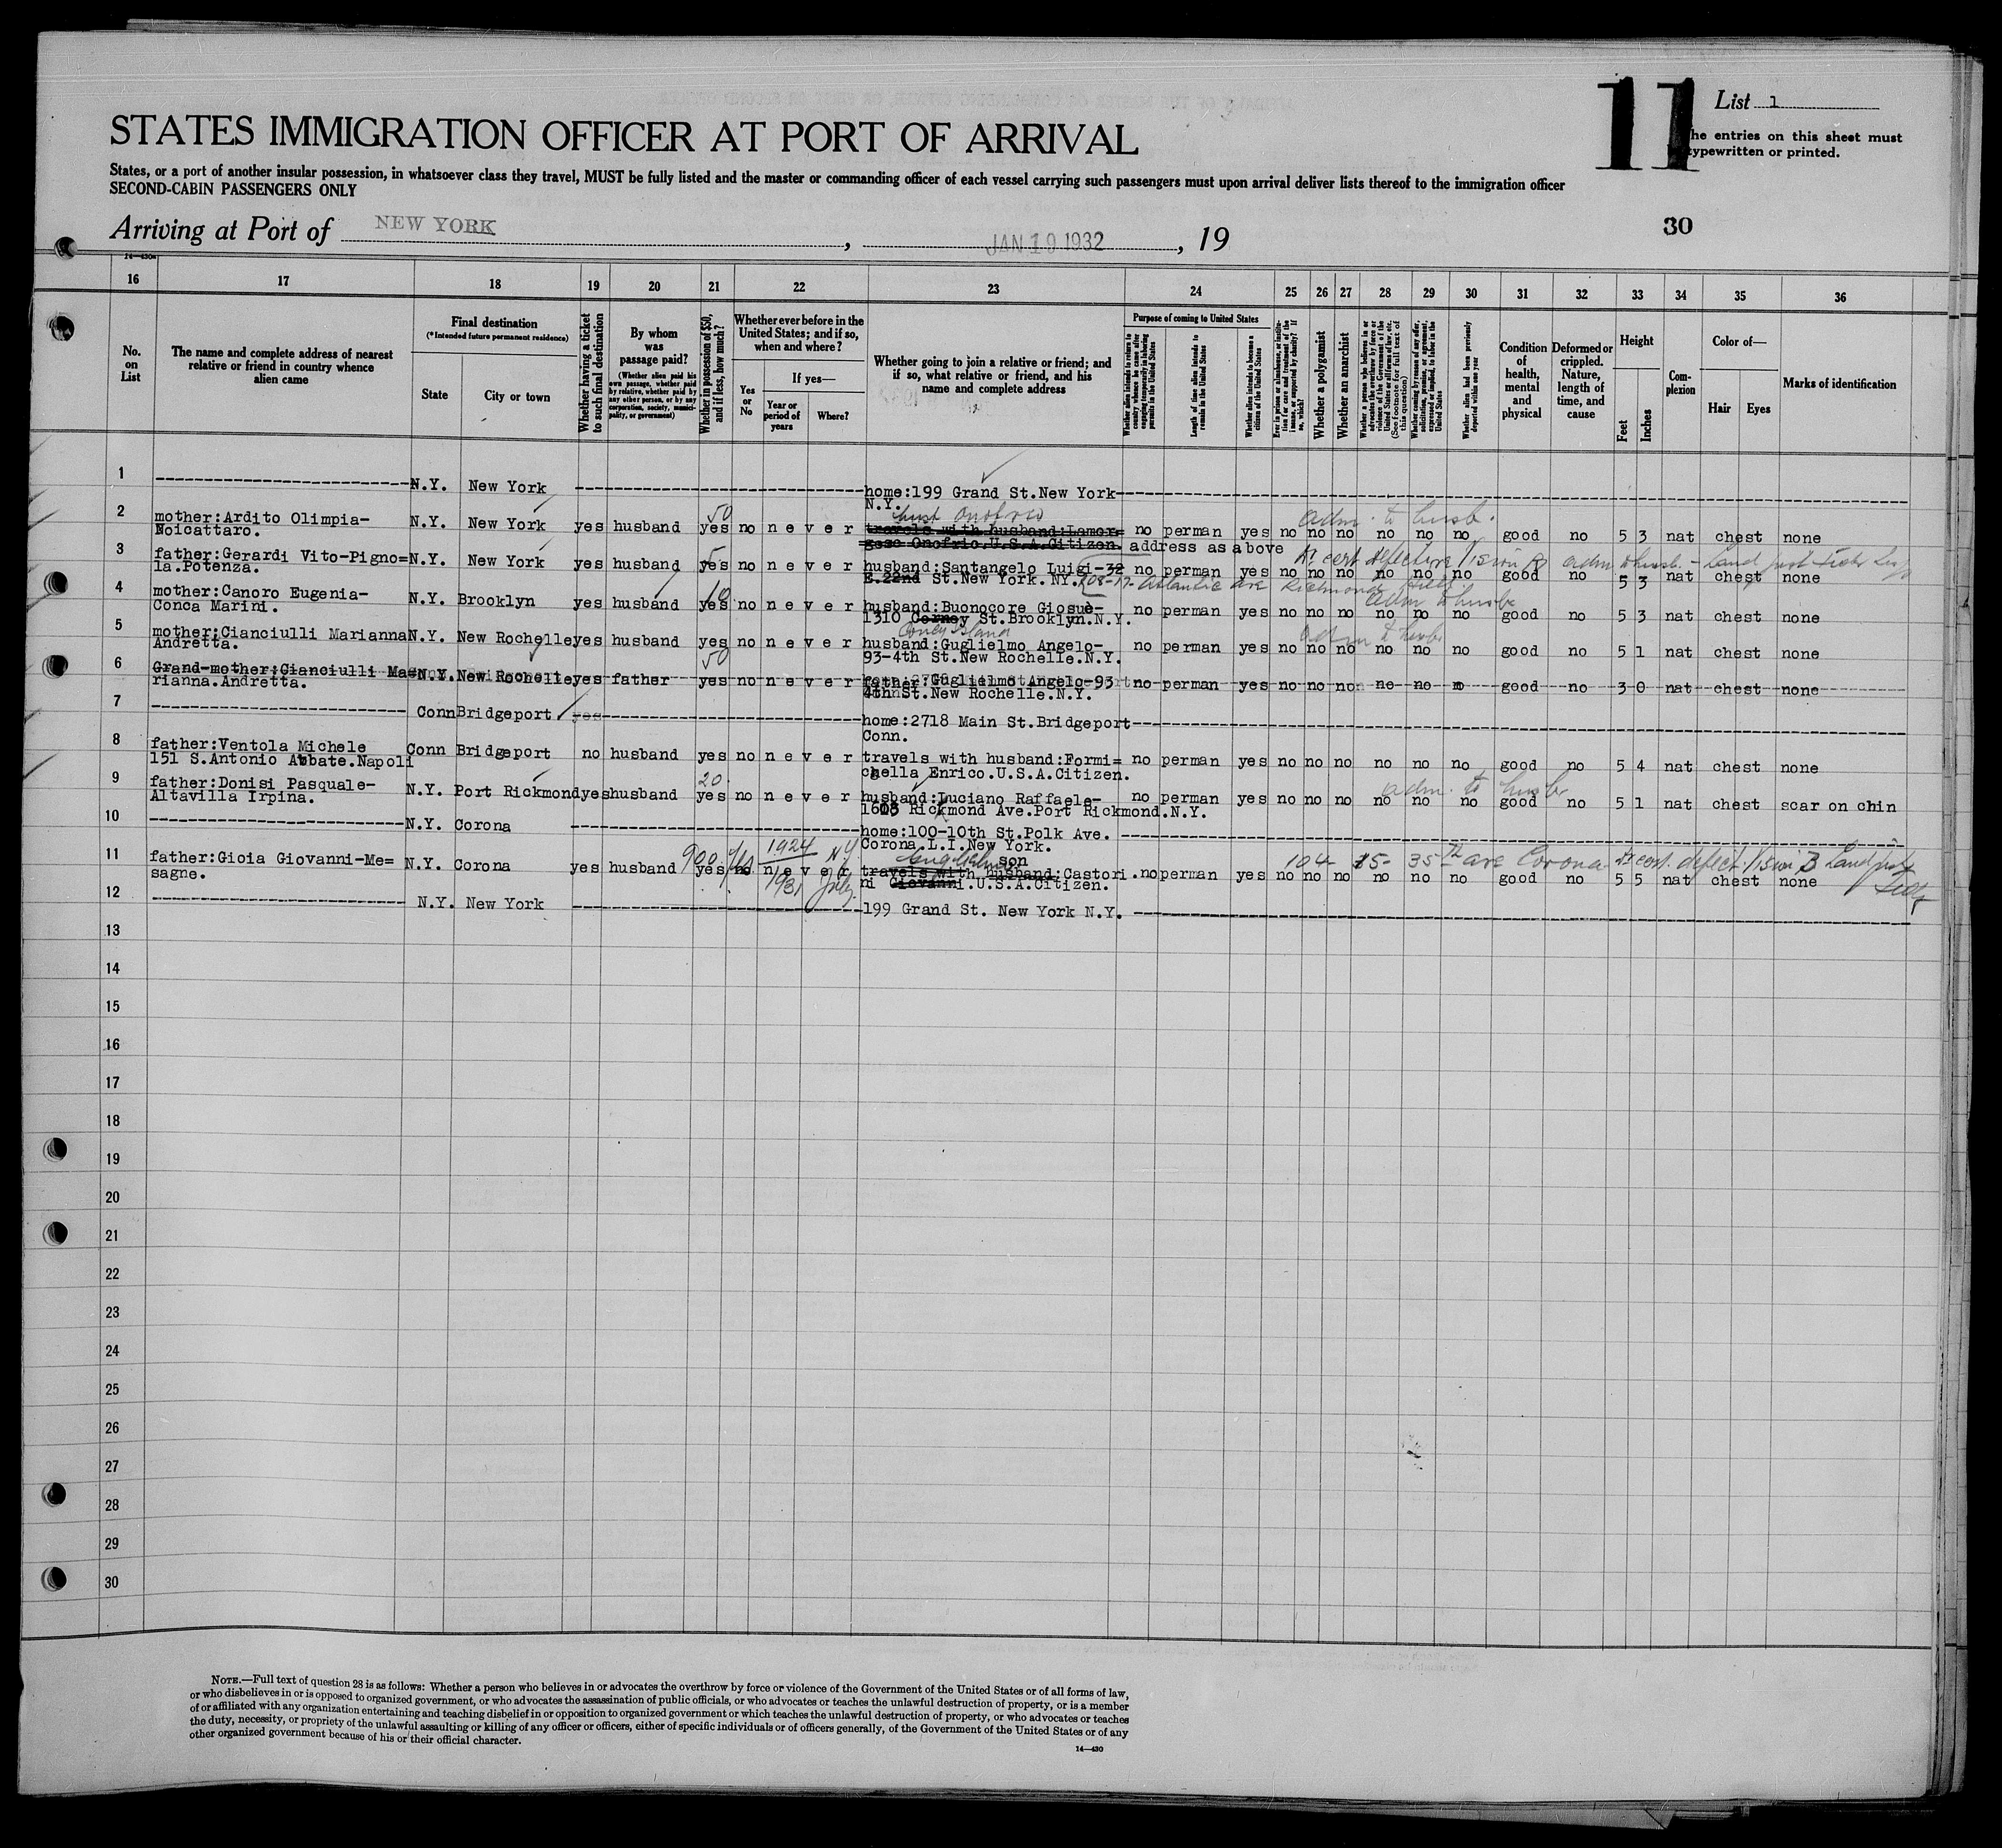 11
List 1
he entries on this sheet must
typewritten or printed.
STATES IMMIGRATION OFFICER AT PORT OF ARRIVAL
States, or a port of another insular possession, in whatsoever class they travel, MUST be fully listed and the master or commanding officer of each vessel carrying such passengers must upon arrival deliver lists thereof to the immigration officer
SECOND-CABIN PASSENGERS ONLY
Arriving at Port of NEW YORK, JAN 19 1932, 19
30
14—430
16 17 18 19 20 21 22 23 24 25 26 27 28 29 30 31 32 33 34 35 36
No. on List
The name and complete address of nearest relative or friend in country whence alien came
Final destination
(*Intended future permanent residence)
State
City or town
Whether having a ticket to such final destination
By whom was passage paid?
(Whether alien paid his own passage, whether paid by relative, whether paid by any other person, or by any corporation, society, municipality, or government)
Whether in possession of $50, and if less, how much?
Whether ever before in the United States; and if so, when and where?
Yes or No
If yes—
Year or period of years
Where?
Whether going to join a relative or friend; and if so, what relative or friend, and his name and complete address
Purpose of coming to United States
Length of time alien intends to remain in the United States
Whether alien intends to become a citizen of the United States
Whether a polygamist
Whether an anarchist
(See footnote for full text of this question)
Whether alien had been previously deported within one year
Condition of health, mental and physical
Deformed or crippled. Nature, length of time, and cause
Height
Feet
Inches
Complexion
Color of—
Hair
Eyes
Marks of identification
1 N.Y. New York home:199 Grand St.New York
N.Y.
husb Onofrio adm. to husb.
2 mother:Ardito Olimpia- N.Y. New York yes husband yes 50 no never travels with husband:Lamor= no perman yes no no no no no no good no 5 3 nat chest none
Noicattaro. gese Onofrio.U.S.A.Citizen. address as above
3 father:Gerardi Vito-Pigno= N.Y. New York yes husband yes 5 no never husband:Santangelo Luigi-32 no perman yes no no no no no no good no 5 3 nat chest none
la.Potenza. E.22nd St.New York.NY. 108-17- Atlantic ave Richmond
adm to husb
4 mother:Canoro Eugenia- N.Y. Brooklyn yes husband yes 10 no never husband:Buonocore Giosuè- no perman yes no no no no no no good no 5 3 nat chest none
Conca Marini. 1310 Corney St.Brooklyn.N.Y.
Coney Island adm to husb
5 mother:Cianciulli Marianna N.Y. New Rochelle yes husband yes 50 no never husband:Guglielmo Angelo- no perman yes no no no no no no good no 5 1 nat chest none
Andretta. 93-4th St.New Rochelle.N.Y.
6 Grand-mother:Cianciulli Ma= N.Y. New Rochelle yes father yes no never father:Guglielmo Angelo-93 no perman yes no no no no no no good no 3 0 nat chest none
rianna.Andretta. 4th St.New Rochelle.N.Y.
7 Conn Bridgeport yes home:2718 Main St.Bridgeport
Conn.
8 father:Ventola Michele Conn Bridgeport no husband yes no never travels with husband:Formi= no perman yes no no no no no no good no 5 4 nat chest none
151 S.Antonio Abbate.Napoli chella Enrico.U.S.A.Citizen.
adm. to husb
9 father:Donisi Pasquale- N.Y. Port Rickmond yes husband yes 20. no never husband:Luciano Raffaele- no perman yes no no no no no no good no 5 1 nat chest scar on chin
Altavilla Irpina. Rickmond Ave.Port Rickmond.N.Y.
10 N.Y. Corona home:100-10th St.Polk Ave.
Corona.L.I.New York.
yes 1924 NY son 104- 35th ave Corona
11 father:Gioia Giovanni-Me= N.Y. Corona yes husband 900 yes no never travels with husband:Castori no perman yes no no no no no no good no 5 5 nat chest none
sagne. 1931 July ni Giovanni.U.S.A.Citizen.
12 N.Y. New York 199 Grand St. New York N.Y.
13
14
15
16
17
18
19
20
21
22
23
24
25
26
27
28
29
30
NOTE.—Full text of question 28 is as follows: Whether a person who believes in or advocates the overthrow by force or violence of the Government of the United States or of all forms of law,
or who disbelieves in or is opposed to organized government, or who advocates the assassination of public officials, or who advocates or teaches the unlawful destruction of property, or is a member
of or affiliated with any organization entertaining and teaching disbelief in or opposition to organized government or which teaches the unlawful destruction of property, or who advocates or teaches
the duty, necessity, or propriety of the unlawful assaulting or killing of any officer or officers, either of specific individuals or of officers generally, of the Government of the United States or of any
other organized government because of his or their official character.
14—430